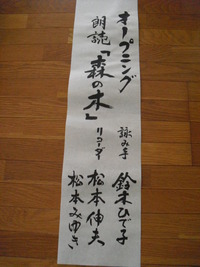 オープニング
朗読「森の木」
詠み手 鈴木ひで子
リコーダー 松本伸夫
松本みゆき